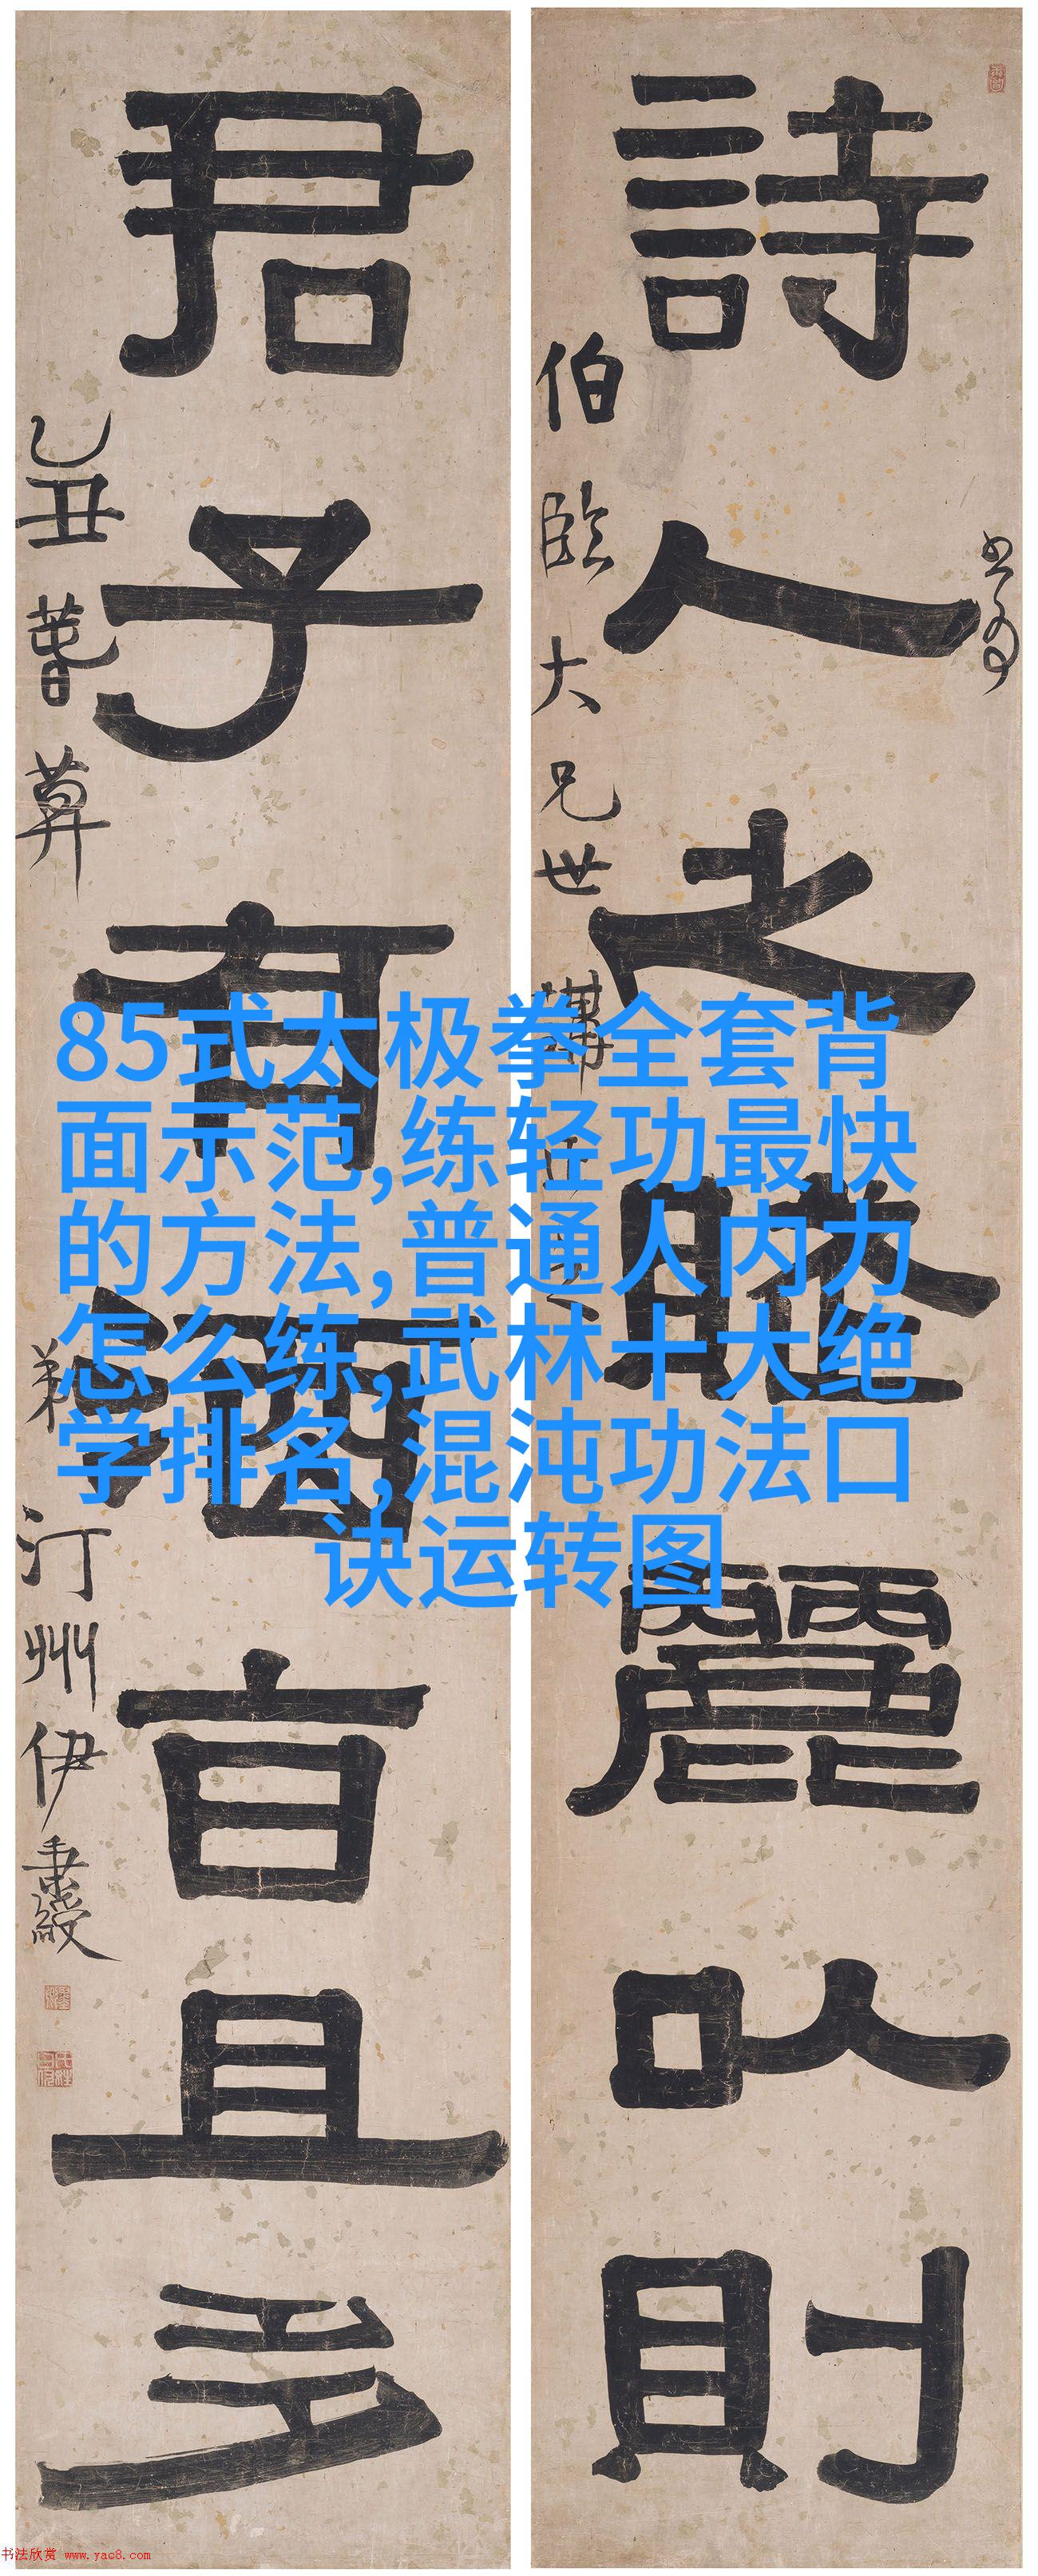 詩人之賦麗以則
伯臨大兄世講
君子有酒旨且多
乙丑暮
弟汀州伊秉綬
85式太极拳全套背
面示范,练轻功最快
的方法,普通人内力
怎么练,武林十大绝
学排名,混沌功法口
诀运转图
书法欣赏 www.yac8.com